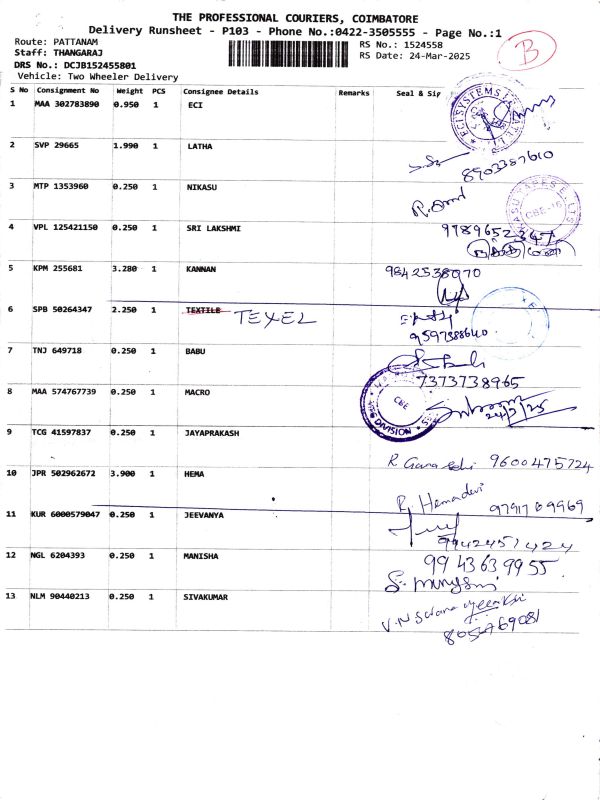 THE PROFESSIONAL COURIERS, COIMBATORE
Delivery Runsheet - P103 - Phone No.:0422-3505555 - Page No.:1
Route: PATTANAM RS No.: 1524558
Staff: THANGARAJ RS Date: 24-Mar-2025
DRS No.: DCJB152455801
Vehicle: Two Wheeler Delivery
B
S No Consignment No Weight PCS Consignee Details Remarks Seal &
1 MAA 302783890 0.950 1 ECI
2 SVP 29665 1.990 1 LATHA
8903387610
3 MTP 1353960 0.250 1 NIKASU
CBE-16
4 VPL 125421150 0.250 1 SRI LAKSHMI
9789652367
5 KPM 255681 3.280 1 KANNAN 9842538070
6 SPB 50264347 2.250 1 TEXTILE TEXEL
9597388640
7 TNJ 649718 0.250 1 BABU
7373738965
8 MAA 574767739 0.250 1 MACRO
CBE
DIVISION
24/3/25
9 TCG 41597837 0.250 1 JAYAPRAKASH
9600475724
10 JPR 502962672 3.900 1 HEMA
R. Hemadevi 9791709969
11 KUR 6000579047 0.250 1 JEEVANYA
9942457424
12 NGL 6204393 0.250 1 MANISHA 9943639955
13 NLM 90440213 0.250 1 SIVAKUMAR